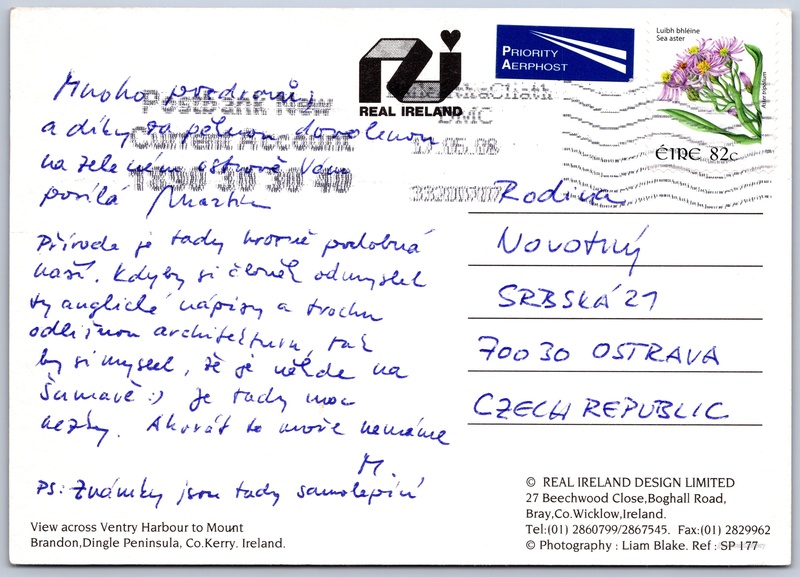 Mnoho pozdravů,
a díky za pěknou dovolenou
na zeleném ostrově Vám
posílá Martin
Příroda je tady hrozně podobná
naší. Kdyby si člověk odmyslel
ty anglické nápisy a trochu
odlišnou architekturu, tak
by si myslel, že je někde na
Šumavě :) Je tady moc
hezky. Akorát to moře nemáme
M.
PS: Známky jsou tady samolepící
View across Ventry Harbour to Mount
Brandon, Dingle Peninsula, Co.Kerry. Ireland.
REAL IRELAND
PRIORITY
AERPHOST
Luibh bhléine
Sea aster
Aster tripolium
ÉIRE 82c
Postbank New
Current Account
1850 30 30 40
Baile Átha Cliath
DMC
Rodina
Novotný
SRBSKÁ 21
700 30 OSTRAVA
CZECH REPUBLIC
© REAL IRELAND DESIGN LIMITED
27 Beechwood Close,Boghall Road,
Bray,Co.Wicklow,Ireland.
Tel:(01) 2860799/2867545. Fax:(01) 2829962
© Photography : Liam Blake. Ref : SP 177